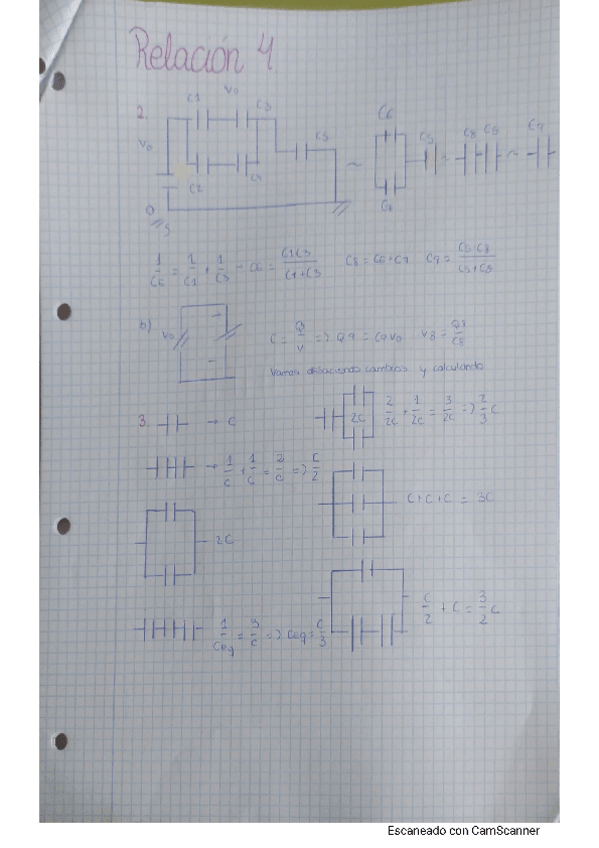 Relación 4
2.
C1 V0 C3
V0 C5
C2 C4
0
C6
C5
C8 C5
C9
1/C6 = 1/C1 + 1/C3 → C6 = C1C3/C1+C3 C8 = C6+C7 C9 = C5·C8/C5+C8
b) V0 C = Q/V => Q9 = C9V0 V8 = Q8/C8
Vamos desaciendo cambios y calculando
3. → C
2C 2/2C + 1/2C = 3/2C => 2/3 C
→ 1/C + 1/C = 2/C => C/2
C+C+C = 3C
2C
1/Ceq = 3/C => Ceq = C/3
C/2 + C = 3/2 C
Escaneado con CamScanner